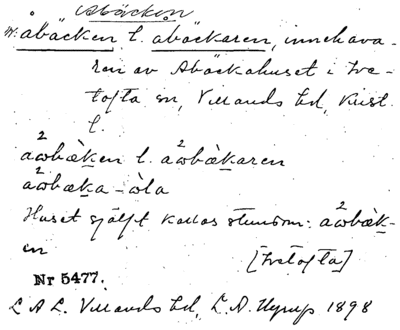 Åbäcken
åbäcken l. åbäckaren, innehava-
ren av Åbäckahuset i Ive-
tofta sn, Villands hd, Krist.
l.
a²ωbæ̀ken l. a²ωbæ̀karen
a²ωbæka-òla
Huset själft kallas stundom: a²ωbæ̀k-
en
[Ivetofta]
Nr 5477.
L A L. Villands hd, L. A. 1898